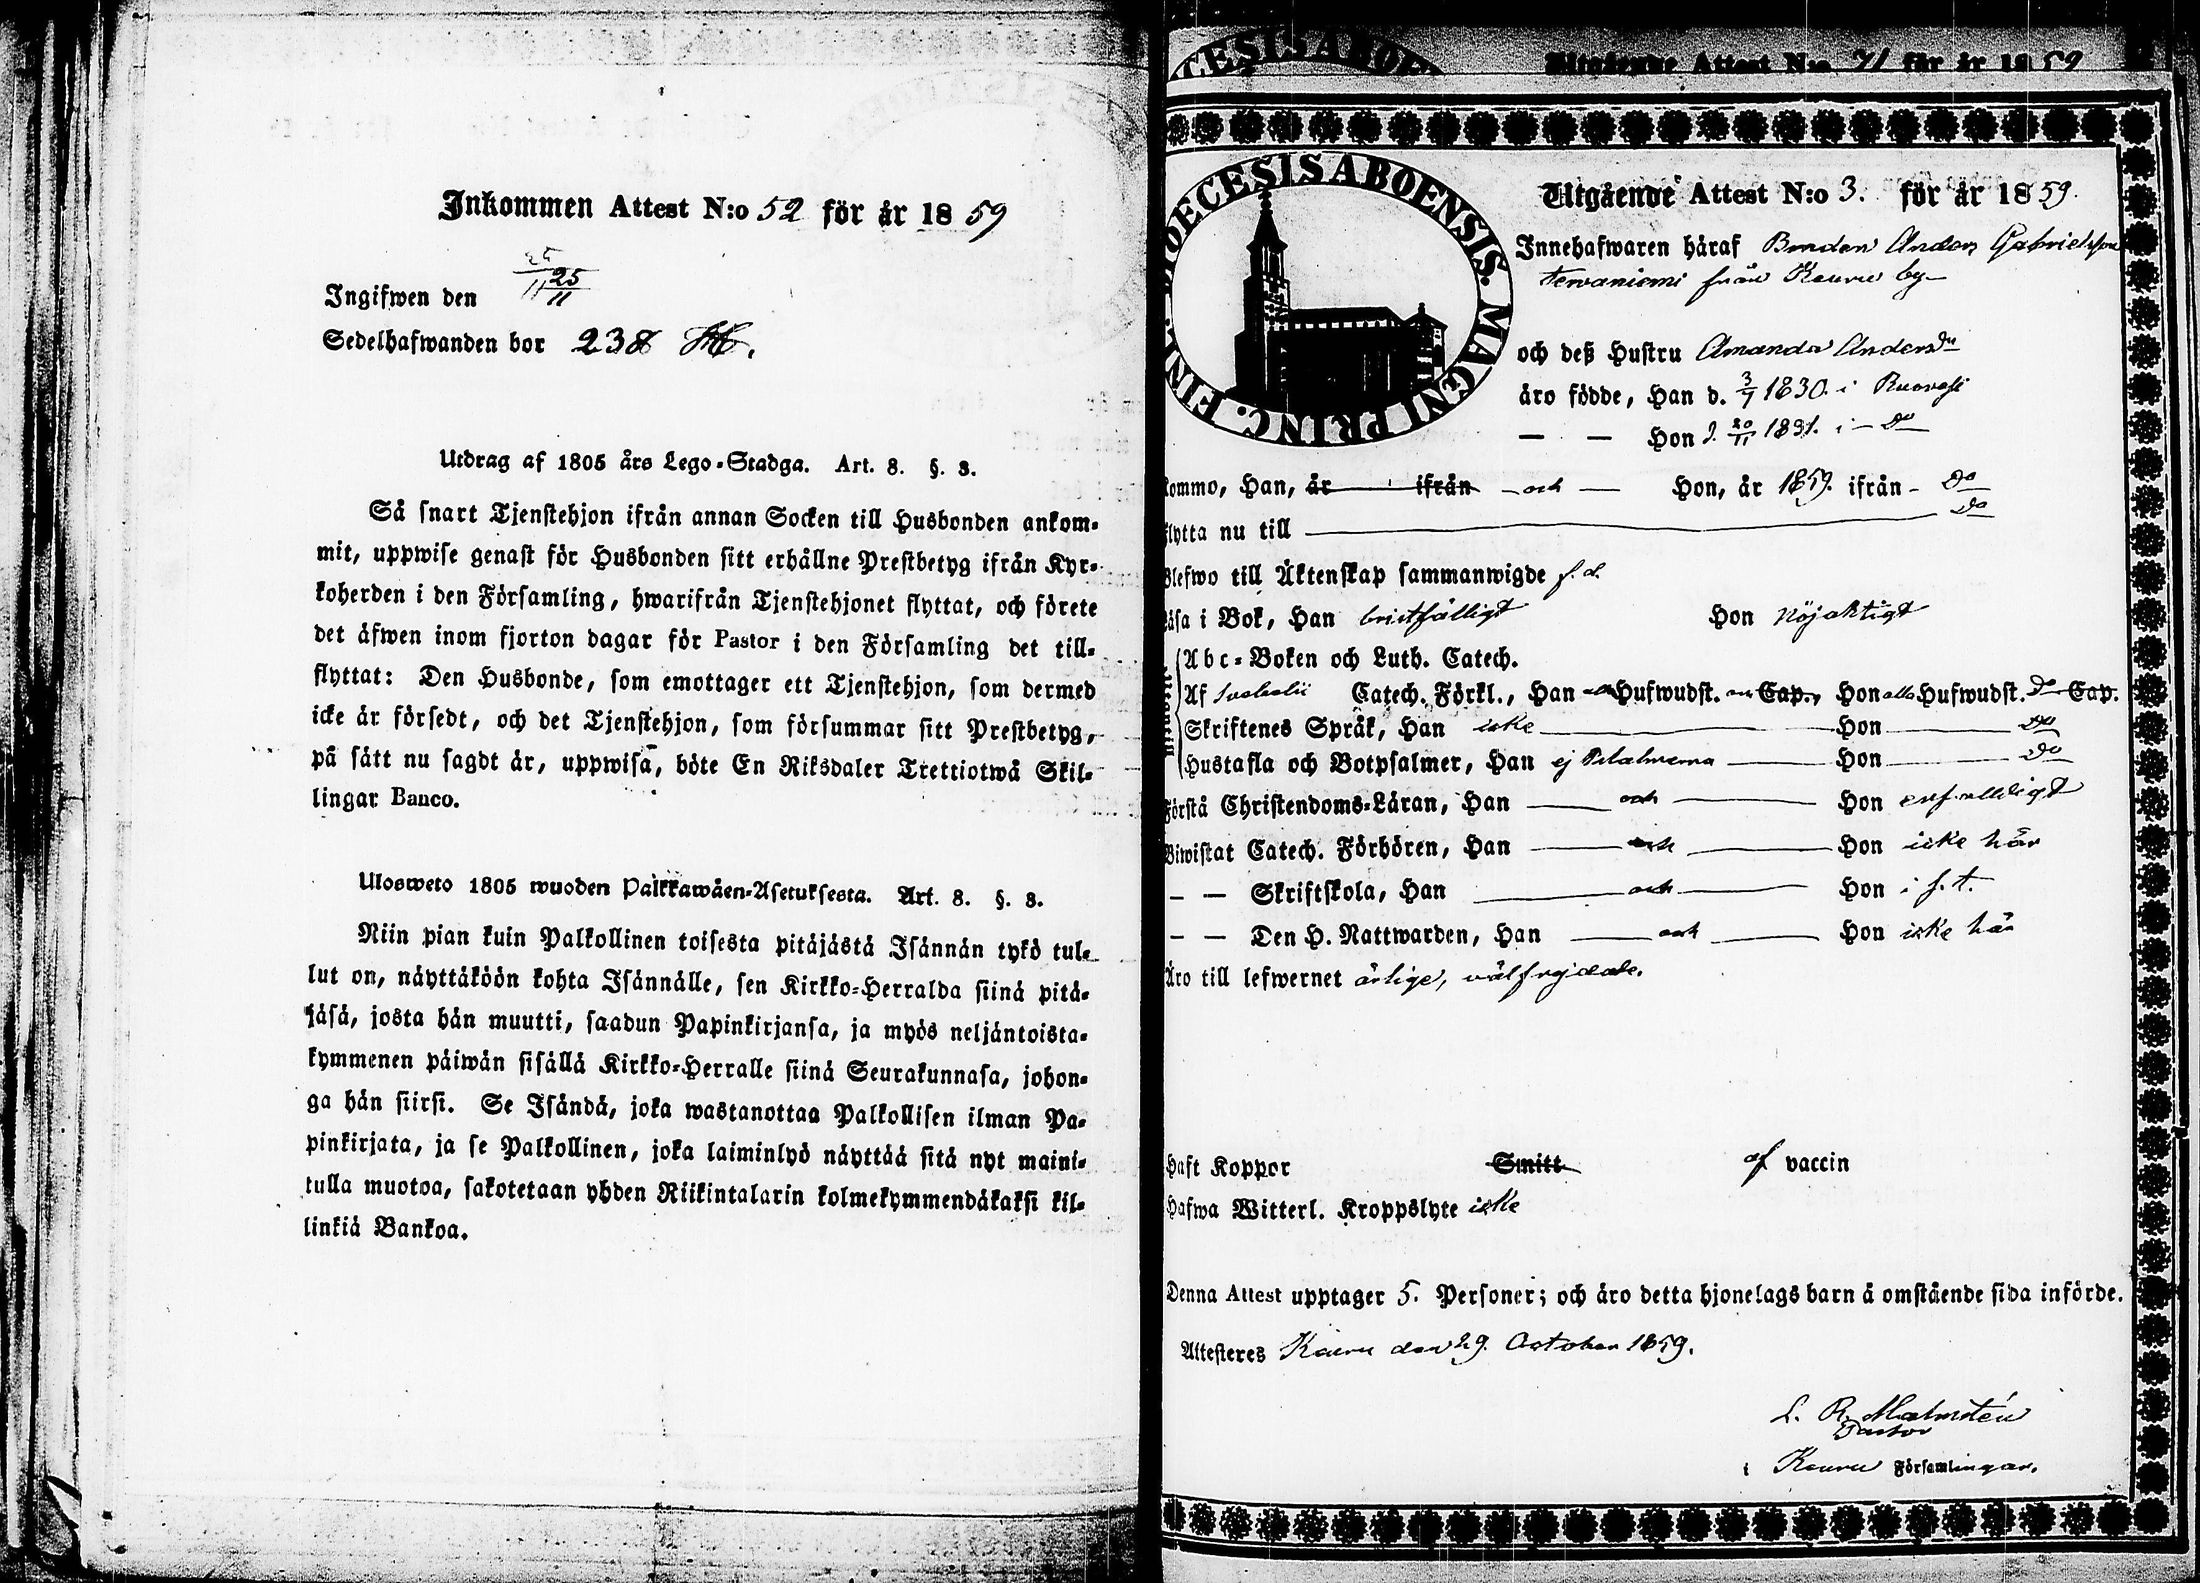 Inkommen Attest N:o 52 för år 1859
25/11
Ingifwen den 25/11
Sedelhafwanden bor 238
Utdrag af 1805 års Lego-Stadga. Art. 8. §. 3.
Så snart Tjenstehjon ifrån annan Socken till Husbonden ankom-
mit, uppwise genast för Husbonden sitt erhållne Prestbetyg ifrån Kyr-
koherden i den Församling, hwarifrån Tjenstehjonet flyttat, och förete
det äfwen inom fjorton dagar för Pastor i den Församling det till-
flyttat: Den Husbonde, som emottager ett Tjenstehjon, som dermed
icke är försedt, och det Tjenstehjon, som försummar sitt Prestbetyg,
på sätt nu sagdt är, uppwisa, böte En Riksdaler Trettiotwå Skil-
lingar Banco.
Ulosweto 1805 wuoden Palkkawäen-Asetuksesta. Art. 8. §. 3.
Niin pian kuin Palkollinen toisesta pitäjästä Isännän tykö tul-
lut on, näyttäköön kohta Isännälle, sen Kirkko-Herralda siinä pitä-
jäsä, josta hän muutti, saadun Papinkirjansa, ja myös neljäntoista-
kymmenen päiwän sisällä Kirkko-Herralle siinä Seurakunnasa, johon-
ga hän siirsi. Se Isändä, joka wastanottaa Palkollisen ilman Pa-
pinkirjata, ja se Palkollinen, joka laiminlyö näyttää sitä nyt maini-
tulla muotoa, sakotetaan yhden Riikintalarin kolmekymmendäkaksi kil-
linkiä Bankoa.
Utgående Attest N:o 71 för år 1859
DIOECESIS ABOENSIS. MAGNI PRINC. FINL.
Utgående Attest N:o 3. för år 1859.
Innehafwaren häraf Bonden Anders Gabrielsson
Terwaniemi från Keuru by
och deß Hustru Amanda Andersdr
äro födde, Han d. 3/7 1830. i Ruovesi
— — Hon d. 20/11 1831. i — Do
kommo, Han, år ifrån — och — Hon, år 1859. ifrån — Do
flytta nu till — Do
Blefwo till Äktenskap sammanwigde f. d.
Läsa i Bok, Han bristfälligt Hon nöjaktigt
Abc-Boken och Luth. Catech.
Af Svebelii Catech. Förkl., Han alla Hufwudst. Cap., Hon alla Hufwudst. Do Cap.
Skriftenes Språk, Han icke — Hon — Do
Hustafla och Botpsalmer, Han ej Psalmerna — Hon — Do
Förstå Christendoms-Läran, Han — och — Hon enfalldigt
Biwistat Catech. Förhören, Han — och — Hon icke här
— — Skriftskola, Han — och — Hon i f. t.
— — Den H. Nattwarden, Han — och — Hon icke här
Äro till lefwernet ärlige, välfrejdade.
Haft Koppor Smitt af vaccin
Hafwa Witterl. Kroppslyte icke
Denna Attest upptager 5. Personer; och äro detta hjonelags barn å omstående sida införde.
Attesteres Keuru den 29. October 1859.
L. R. Malmstén
Pastor
i Keuru Församlingar.